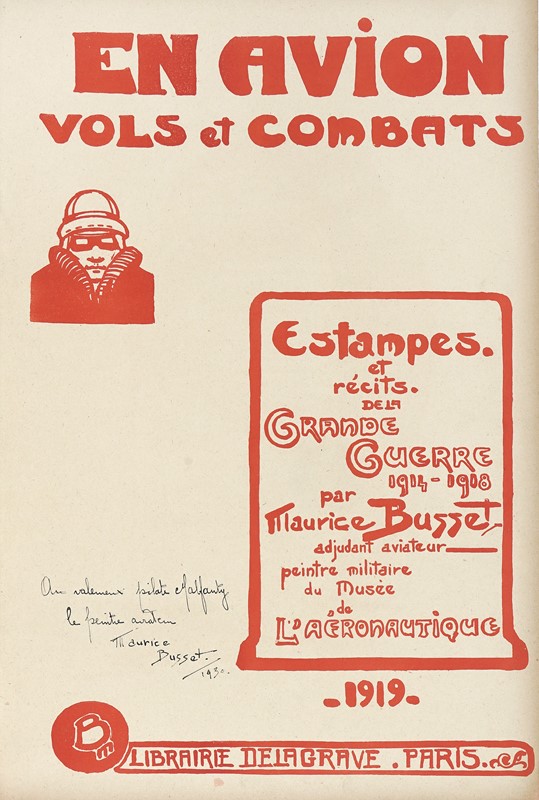 EN AVION
VOLS et COMBATS
Estampes.
et
récits.
DE LA
GRANDE
GUERRE
1914-1918
par
Maurice Busset
adjudant aviateur
peintre militaire
du Musée
de
L'AÉRONAUTIQUE
Au valeureux pilote
le peintre aviateur
Maurice
Busset.
1930.
-1919-
B
m
LIBRAIRIE DELAGRAVE . PARIS.